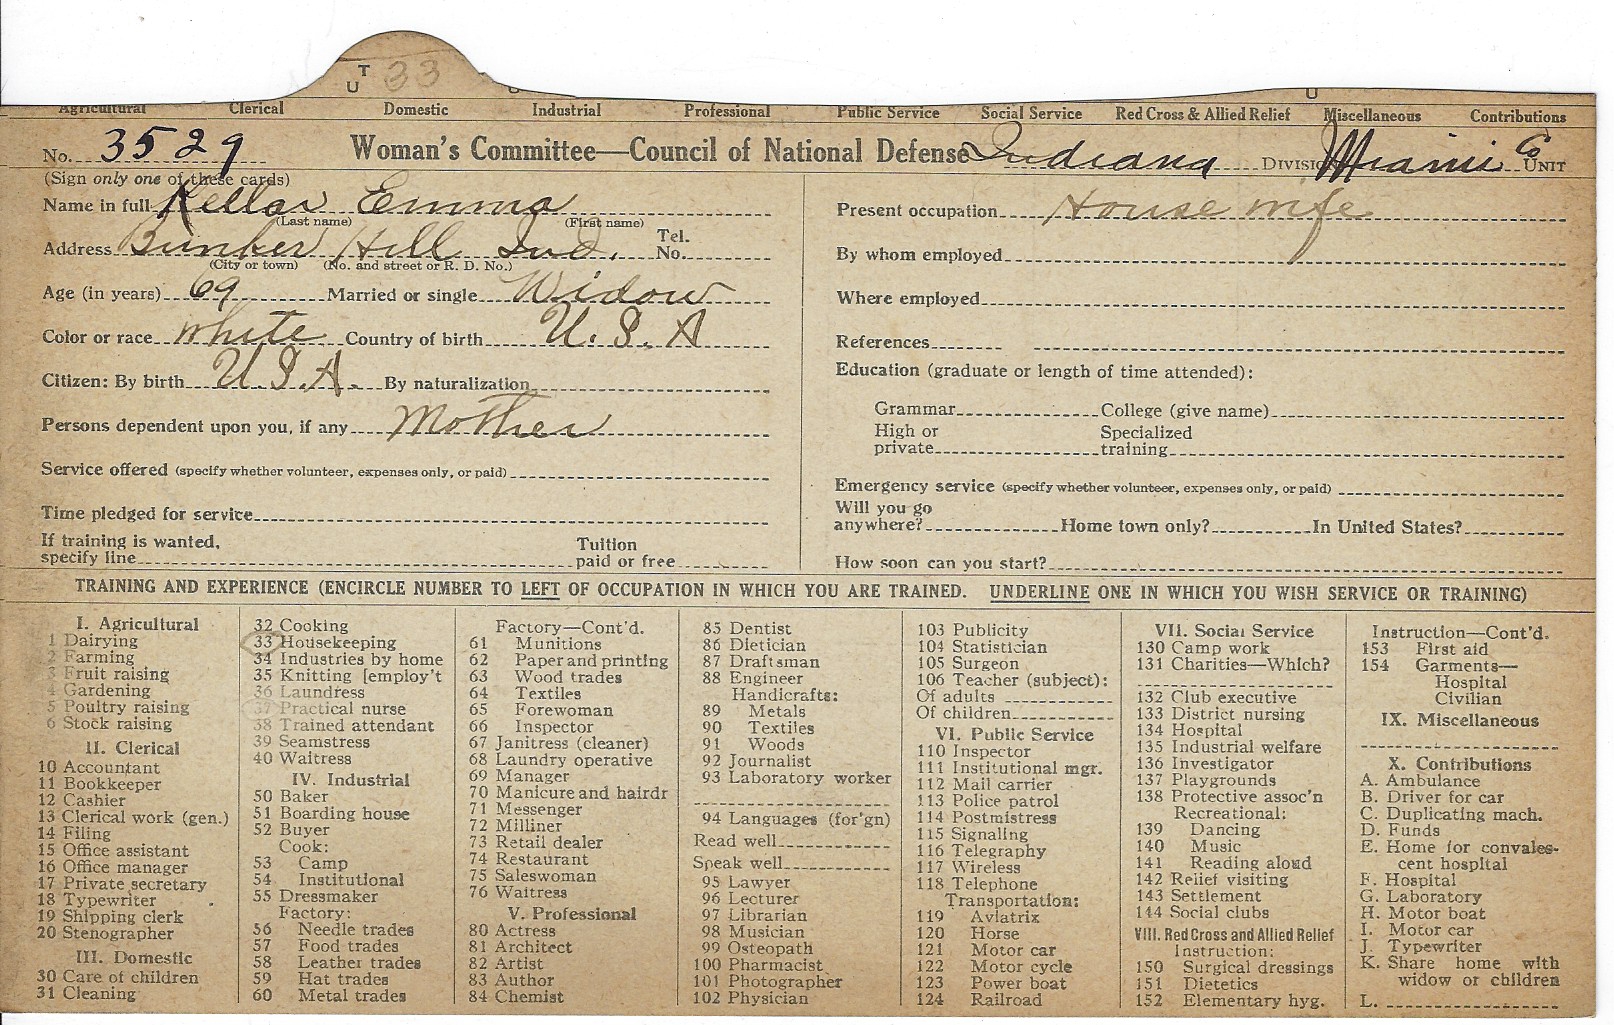 T U 33
Agricultural Clerical Domestic Industrial Professional Public Service Social Service Red Cross & Allied Relief Miscellaneous Contributions
No. 3529 Woman's Committee—Council of National Defense Indiana Division Miami Co Unit
(Sign only one of these cards)
Name in full Kellar Emma
(Last name) (First name)
Address Bunker Hill Ind. Tel. No.
(City or town) (No. and street or R. D. No.)
Age (in years) 69 Married or single Widow
Color or race white Country of birth U.S.A
Citizen: By birth U.S.A. By naturalization
Persons dependent upon you, if any Mother
Service offered (specify whether volunteer, expenses only, or paid)
Time pledged for service
If training is wanted, specify line Tuition paid or free
Present occupation House wife
By whom employed
Where employed
References
Education (graduate or length of time attended):
Grammar College (give name)
High or private Specialized training
Emergency service (specify whether volunteer, expenses only, or paid)
Will you go anywhere? Home town only? In United States?
How soon can you start?
TRAINING AND EXPERIENCE (ENCIRCLE NUMBER TO LEFT OF OCCUPATION IN WHICH YOU ARE TRAINED. UNDERLINE ONE IN WHICH YOU WISH SERVICE OR TRAINING)
I. Agricultural
1 Dairying
2 Farming
3 Fruit raising
4 Gardening
5 Poultry raising
6 Stock raising
II. Clerical
10 Accountant
11 Bookkeeper
12 Cashier
13 Clerical work (gen.)
14 Filing
15 Office assistant
16 Office manager
17 Private secretary
18 Typewriter
19 Shipping clerk
20 Stenographer
III. Domestic
30 Care of children
31 Cleaning
32 Cooking
33 Housekeeping
34 Industries by home
35 Knitting [employ't
36 Laundress
37 Practical nurse
38 Trained attendant
39 Seamstress
40 Waitress
IV. Industrial
50 Baker
51 Boarding house
52 Buyer
Cook:
53 Camp
54 Institutional
55 Dressmaker
Factory:
56 Needle trades
57 Food trades
58 Leather trades
59 Hat trades
60 Metal trades
Factory—Cont'd.
61 Munitions
62 Paper and printing
63 Wood trades
64 Textiles
65 Forewoman
66 Inspector
67 Janitress (cleaner)
68 Laundry operative
69 Manager
70 Manicure and hairdr
71 Messenger
72 Milliner
73 Retail dealer
74 Restaurant
75 Saleswoman
76 Waitress
V. Professional
80 Actress
81 Architect
82 Artist
83 Author
84 Chemist
85 Dentist
86 Dietician
87 Draftsman
88 Engineer
Handicrafts:
89 Metals
90 Textiles
91 Woods
92 Journalist
93 Laboratory worker
94 Languages (for'gn)
Read well
Speak well
95 Lawyer
96 Lecturer
97 Librarian
98 Musician
99 Osteopath
100 Pharmacist
101 Photographer
102 Physician
103 Publicity
104 Statistician
105 Surgeon
106 Teacher (subject):
Of adults
Of children
VI. Public Service
110 Inspector
111 Institutional mgr.
112 Mail carrier
113 Police patrol
114 Postmistress
115 Signaling
116 Telegraphy
117 Wireless
118 Telephone
Transportation:
119 Aviatrix
120 Horse
121 Motor car
122 Motor cycle
123 Power boat
124 Railroad
VII. Social Service
130 Camp work
131 Charities—Which?
132 Club executive
133 District nursing
134 Hospital
135 Industrial welfare
136 Investigator
137 Playgrounds
138 Protective assoc'n
Recreational:
139 Dancing
140 Music
141 Reading aloud
142 Relief visiting
143 Settlement
144 Social clubs
VIII. Red Cross and Allied Relief
Instruction:
150 Surgical dressings
151 Dietetics
152 Elementary hyg.
Instruction—Cont'd.
153 First aid
154 Garments—
Hospital
Civilian
IX. Miscellaneous
X. Contributions
A. Ambulance
B. Driver for car
C. Duplicating mach.
D. Funds
E. Home for convales-
cent hospital
F. Hospital
G. Laboratory
H. Motor boat
I. Motor car
J. Typewriter
K. Share home with
widow or children
L.